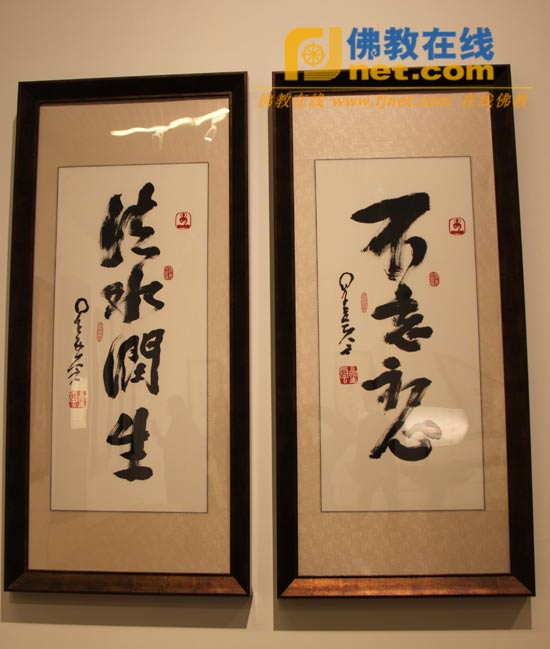 佛教在线
fjnet.com
佛教在线 www.fjnet.com 在线佛教
不忘初心
法水潤生